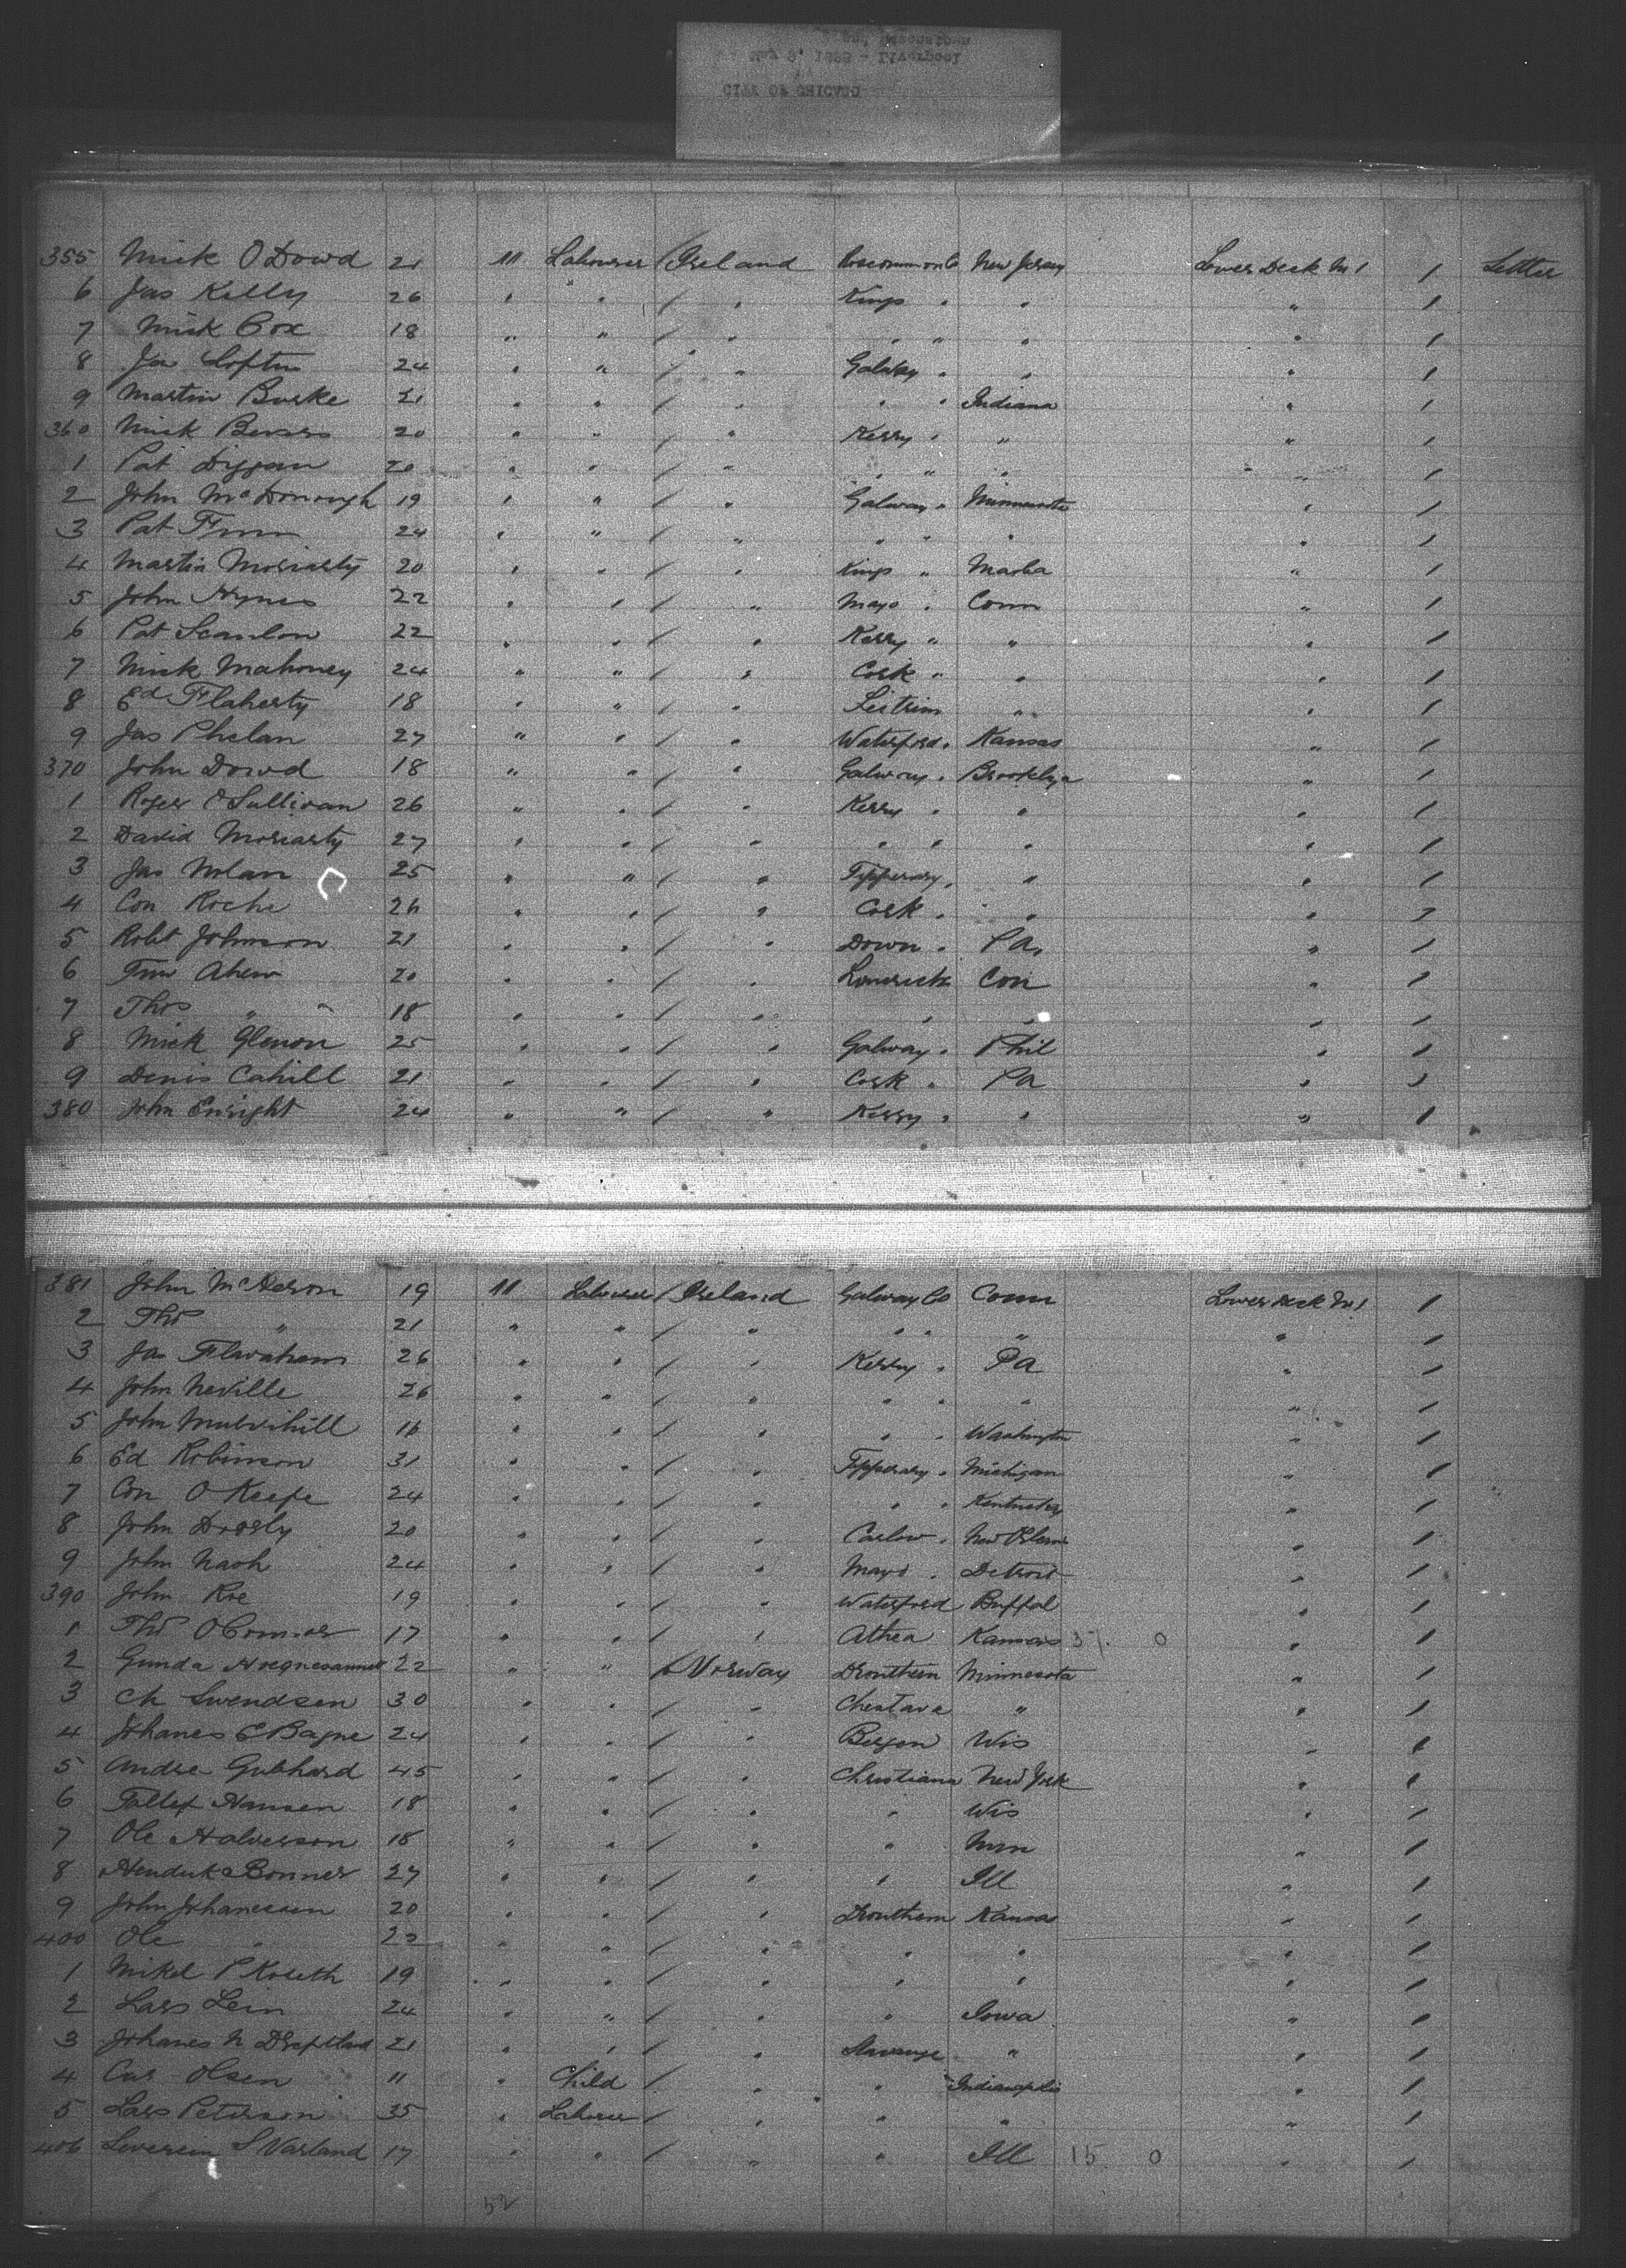 CITY OF CHICAGO
355 Mick O Dowd 21 11 Labourer / Ireland Roscommon Co New Jersey Lower Deck No 1 1 Letter
6 Jas Kelly 26 " " / " Kings " " " 1
7 Mick Cox 18 " " / " " " " " 1
8 Jas Loftus 24 " " / " Galway " " " 1
9 Martin Burke 21 " " / " " " Indiana " 1
360 Mick 20 " " / " Kerry " " " 1
1 Pat Diggan 20 " " / " " " " " 1
2 John McDonough 19 " " / " Galway " Minnesota " 1
3 Pat Finn 24 " " / " " " " " 1
4 Martin Moriarty 20 " " / " Kings " " 1
5 John Hynes 22 " " / " Mayo " Conn " 1
6 Pat Scanlon 22 " " / " Kerry " " " 1
7 Mick Mahoney 24 " " / " Cork " " " 1
8 Ed Flaherty 18 " " / " Leitrim " " 1
9 Jas Phelan 27 " " / " Waterford " Kansas " 1
370 John Dowd 18 " " / " Galway " Brooklyn " 1
1 Roger O Sullivan 26 " " / " Kerry " " " 1
2 David Moriarty 27 " " / " " " " " 1
3 Jas Nolan 25 " " / " Tipperary " " " 1
4 Con Roche 26 " " / " Cork " " " 1
5 Robt Johnson 21 " " / " Down " Pa. " 1
6 Tim Ahern 20 " " / " Limerick Con " 1
7 Thos " 18 " " / " " " " 1
8 Mick Glenon 25 " " / " Galway " Phil " 1
9 Denis Cahill 21 " " / " Cork " Pa " 1
380 John Enright 24 " " / " Kerry " " " 1
381 John McHeron 19 11 Labourer / Ireland Galway Co Conn Lower Deck No 1 1
2 Thos " 21 " " / " " " " " 1
3 Jas Flavahan 26 " " / " Kerry " Pa " 1
4 John Neville 26 " " / " " " " " 1
5 John Mulvihill 16 " " / " " " Washington " 1
6 Ed Robinson 31 " " / " Tipperary " Michigan " 1
7 Con O Keefe 24 " " / " " " Kentucky " 1
8 John 20 " " / " Carlow " New Orleans " 1
9 John Nash 24 " " / " Mayo " Detroit " 1
390 John Roe 19 " " / " Waterford Buffal " 1
1 Thos O Connor 17 " " / " Athea Kansas 0 " 1
2 Gunda 22 " " / Norway Drontheim Minnesota " 1
3 Ch Swendsen 30 " " / " " " 1
4 Johanes E Bagne 24 " " / " Bergen Wis " 1
5 Andre Gubhard 45 " " / " Christiana New York " 1
6 Tallef Hansen 18 " " / " " Wis " 1
7 Ole Halverson 18 " " / " " Min " 1
8 Bonner 27 " " / " " Ill " 1
9 John Johanessen 20 " " / " Drontheim Kansas " 1
400 Ole " 22 " " / " " " " 1
1 Mikel P Koseth 19 " " / " " " " 1
2 Lars Lein 24 " " / " " Iowa " 1
3 Johanes N 21 " " / " Stavange " " 1
4 Olsen 11 " Child / " " Indianapolis " 1
5 Lars Peterson 35 " Laborer / " " " " 1
406 Severein S Varland 17 " " / " " Ill 15 0 " 1
52